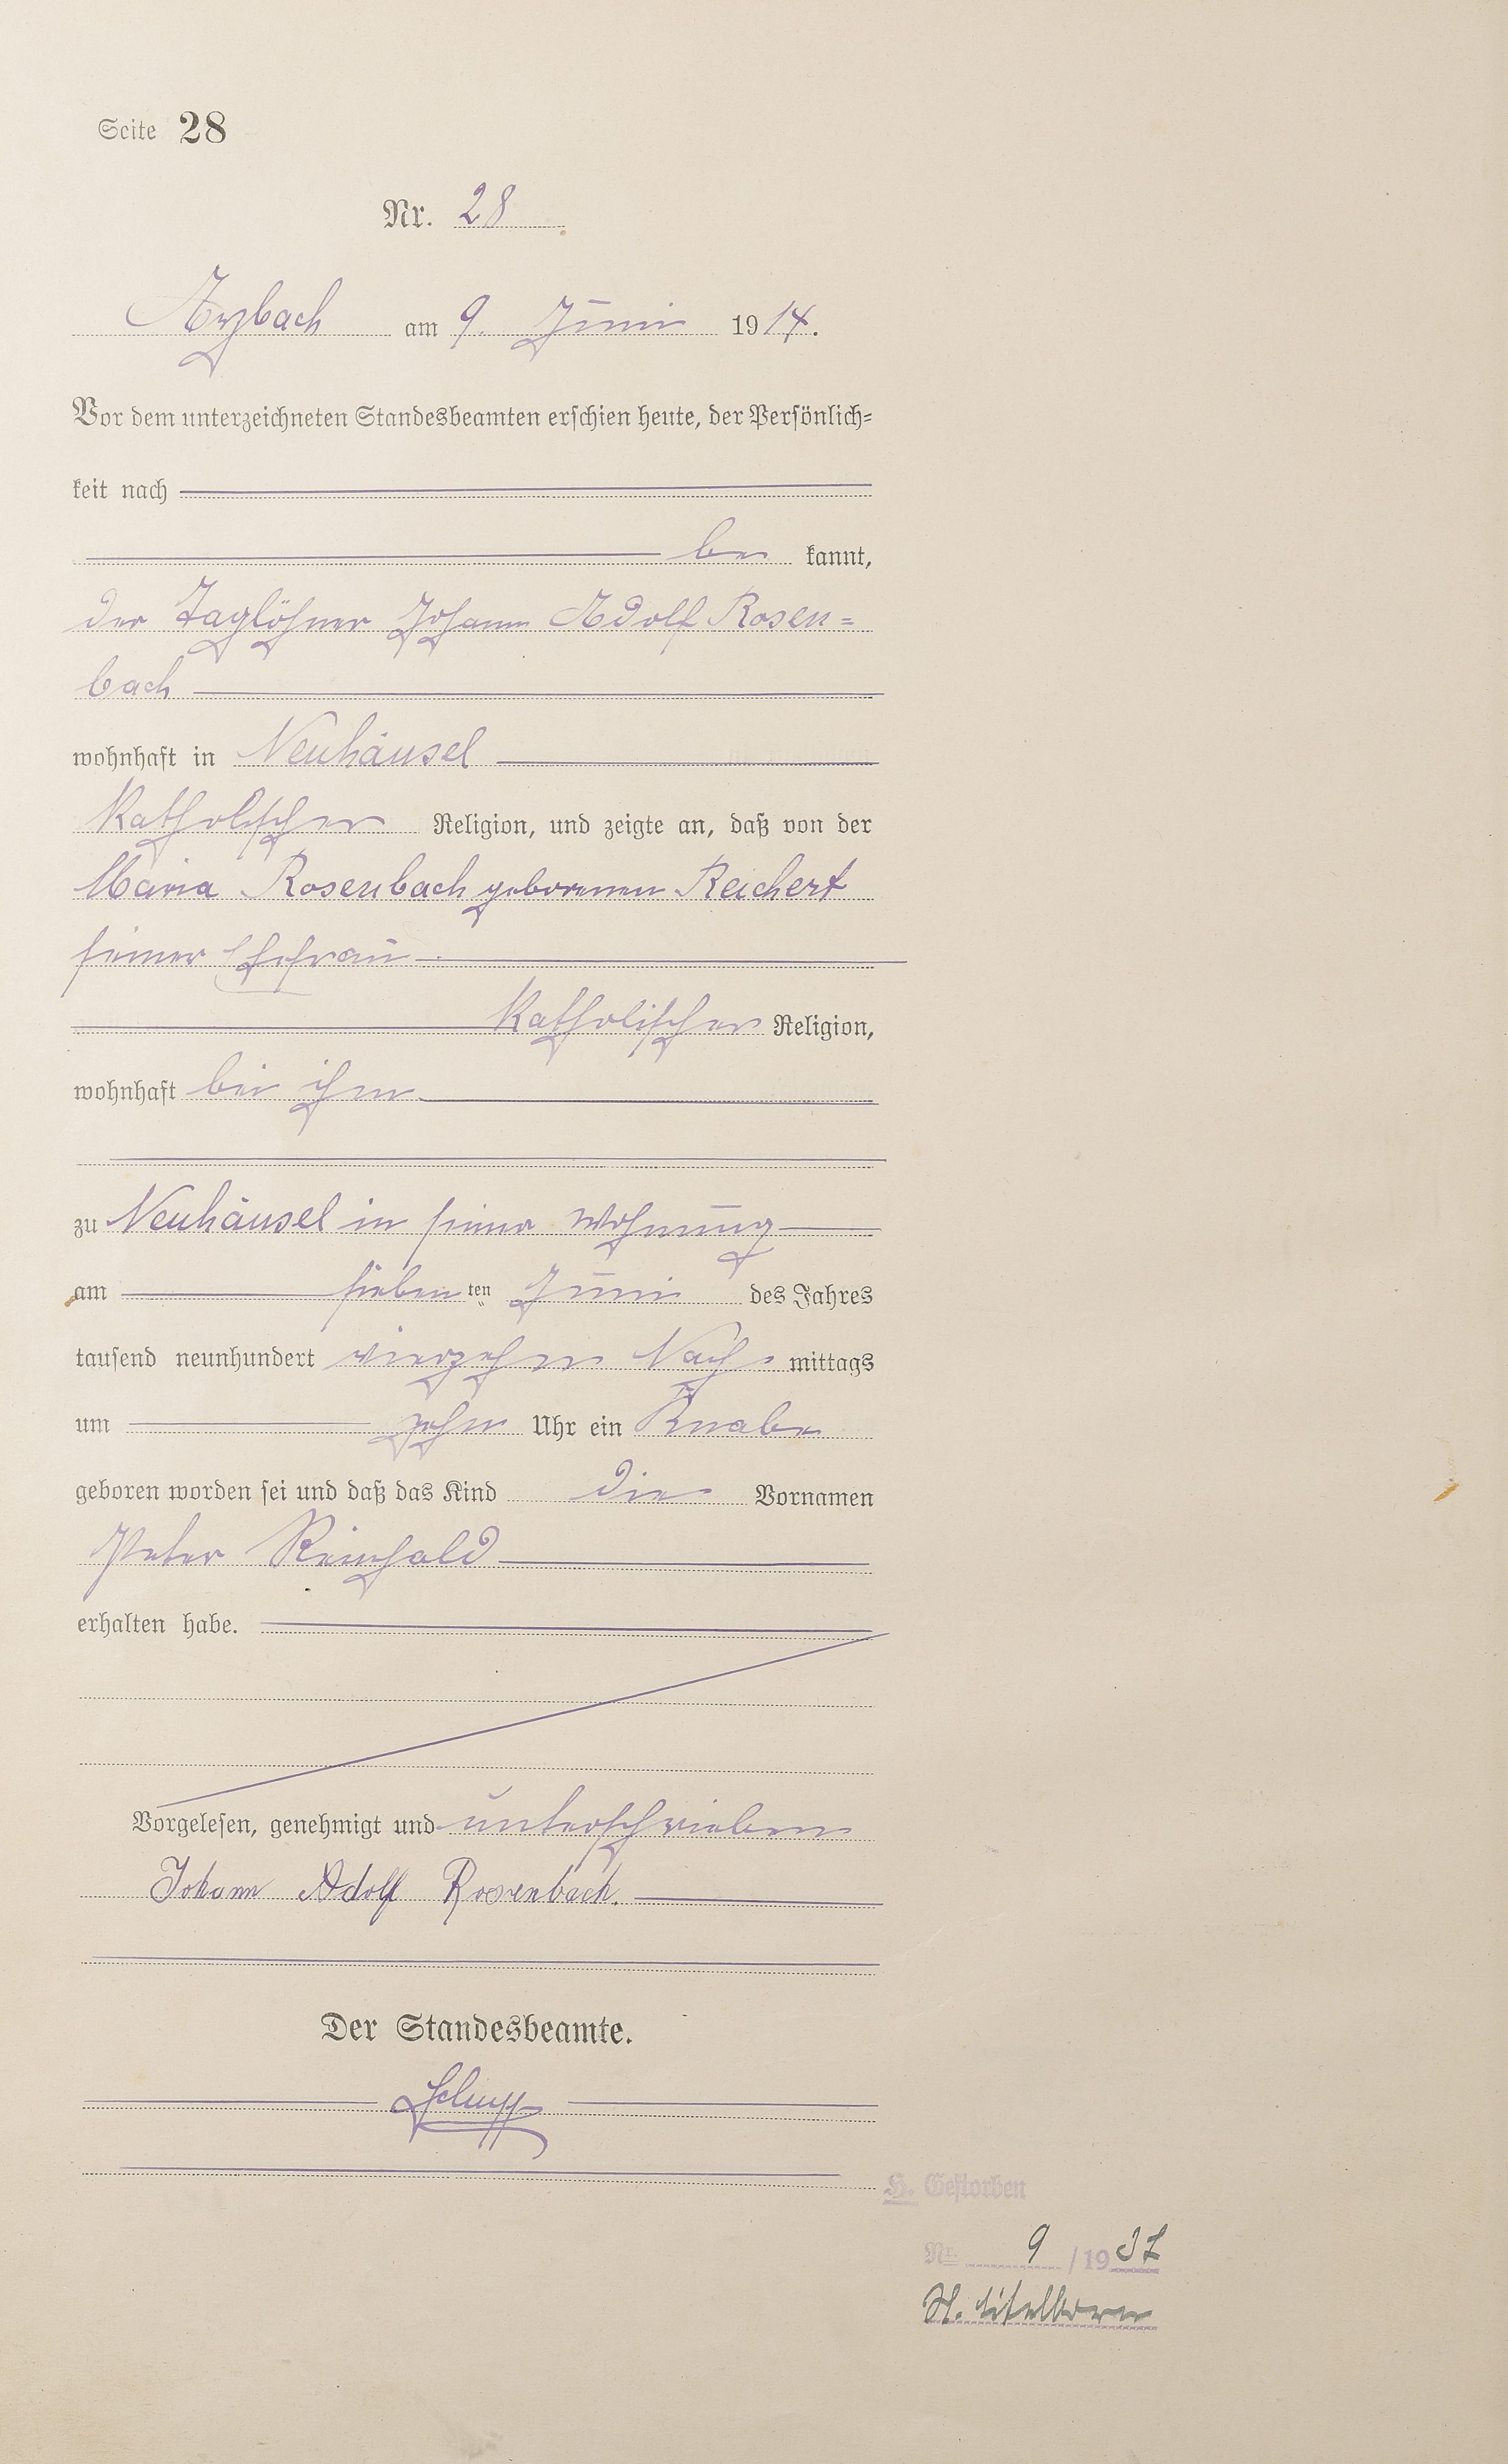 Seite 28
Nr. 28
Arzbach am 9. Juni 1914.
Vor dem unterzeichneten Standesbeamten erschien heute, der Persönlich=
keit nach
be kannt,
der Taglöhner Johann Adolf Rosen=
bach
wohnhaft in Neuhäusel
katholischer Religion, und zeigte an, daß von der
Maria Rosenbach geborenen Reichert
seiner Ehefrau
katholischer Religion,
wohnhaft bei ihm
zu Neuhäusel in seiner Wohnung
am sieben ten Juni des Jahres
tausend neunhundert vierzehn Nach mittags
um zehn Uhr ein Knabe
geboren worden sei und daß das Kind die Vornamen
Peter Reinhald
erhalten habe.
Vorgelesen, genehmigt und unterschrieben
Johann Adolf Rosenbach.
Der Standesbeamte.
H. Gestorben
Nr. 9 /19